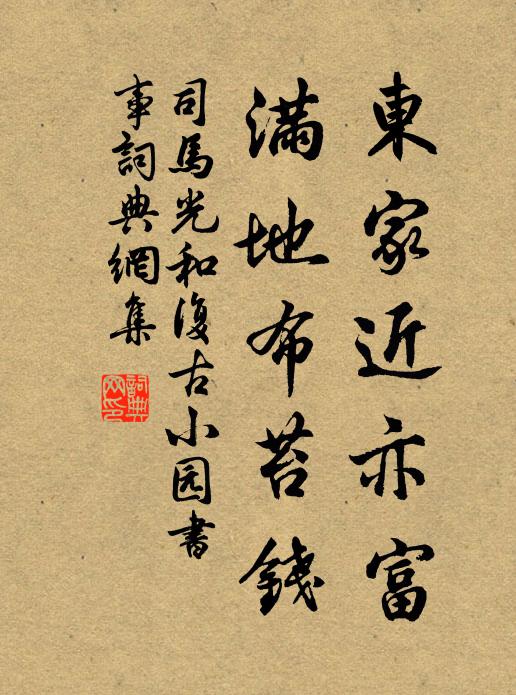 東家近亦富
滿地布苔錢
司馬光和復古小园書
事詞典網集
詞典
网印